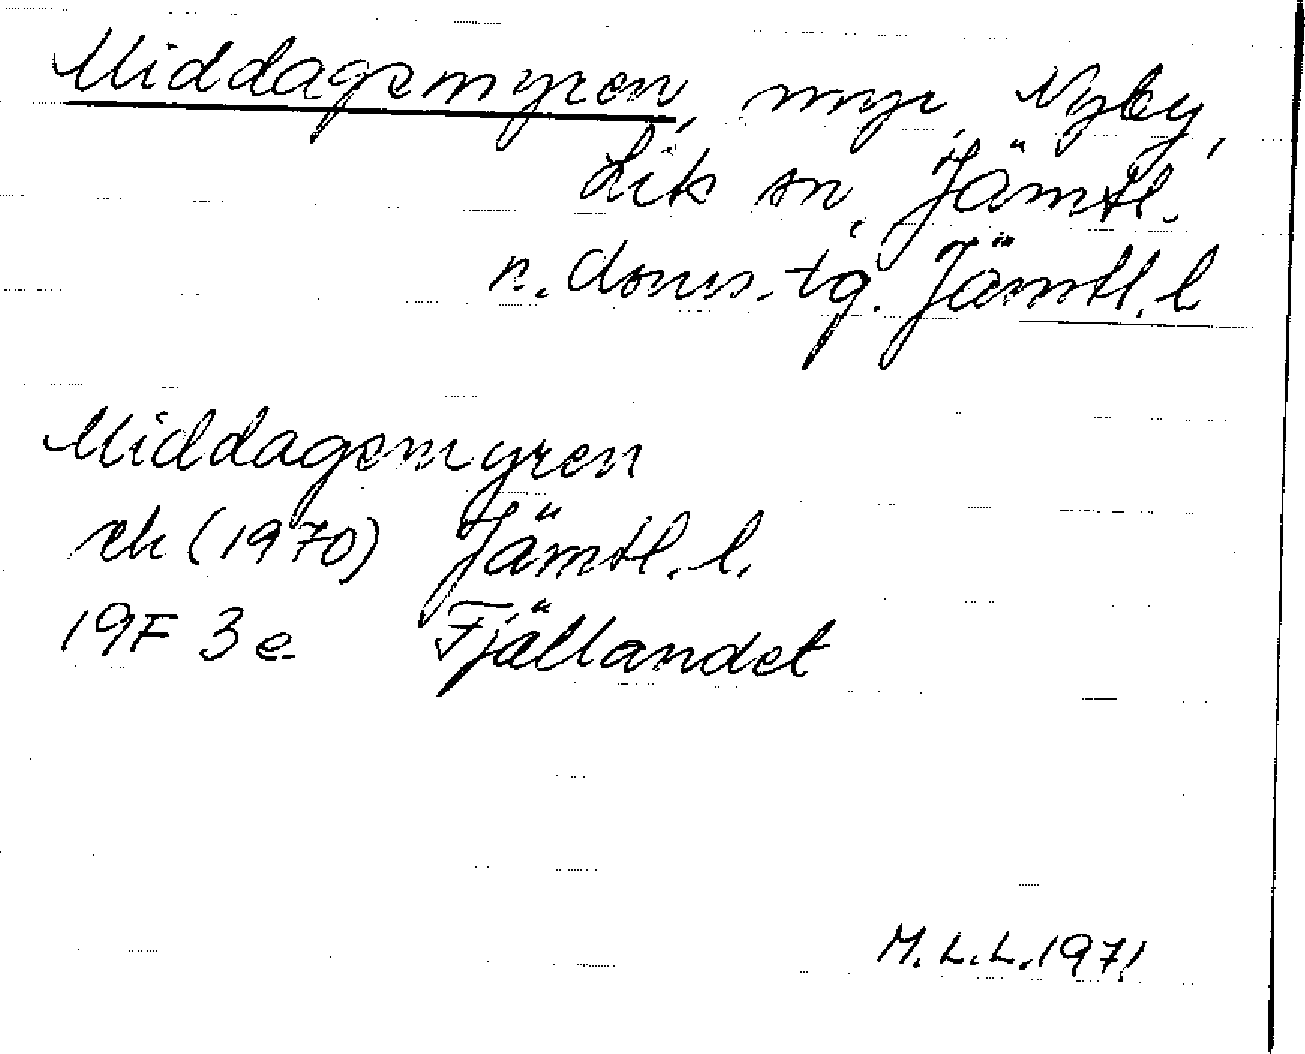 Middagsmyren, myr, Nyby,
Lit sn, Jämtl.
n. doms. tg. Jämtl. l
Middagsmyren
ek (1970) Jämtl. l.
19F 3e Fjällandet
M. L. L. 1971